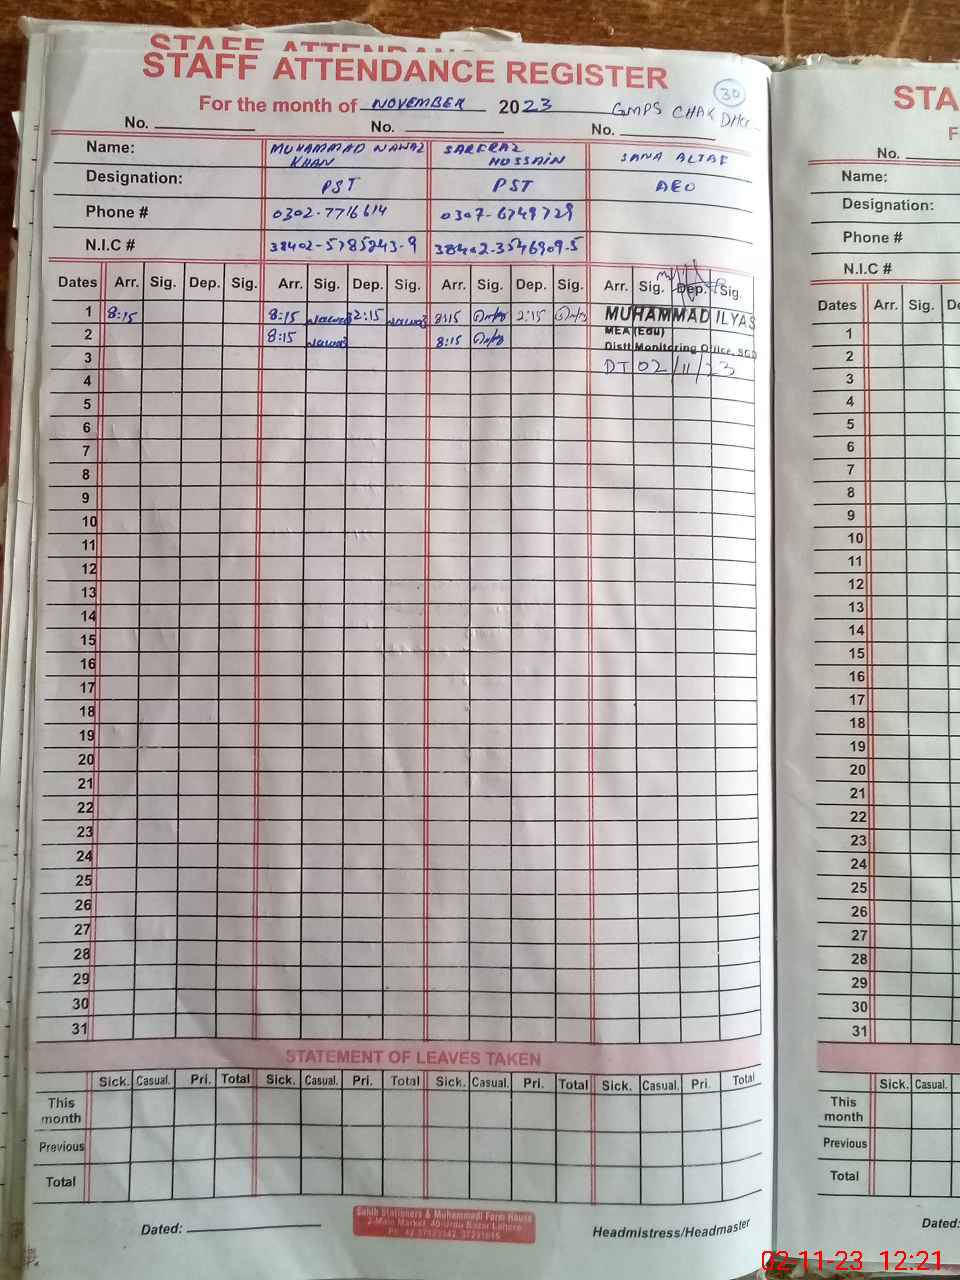 STAFF ATTENDANCE
STAFF ATTENDANCE REGISTER
30
For the month of NOVEMBER 2023 GMPS CHAK
No. No. No.
Name: MUHAMMAD NAWAZ KHAN SARFRAZ HUSSAIN SANA ALTAF
Designation: PST PST AEO
Phone # 0302-7716614 0307-6749729
N.I.C # 38402-5785243-9 38402-3546909-5
Dates Arr. Sig. Dep. Sig. Arr. Sig. Dep. Sig. Arr. Sig. Dep. Sig. Arr. Sig. Dep. Sig.
1 8:15 8:15 nawaz 2:15 nawaz 8:15 2:15 MUHAMMAD ILYAS
2 8:15 nawaz 8:15 MEA (Edu)
3 Distt Monitoring Office, SGD
4 DT 02/11/23
5
6
7
8
9
10
11
12
13
14
15
16
17
18
19
20
21
22
23
24
25
26
27
28
29
30
31
STATEMENT OF LEAVES TAKEN
Sick. Casual. Pri. Total Sick. Casual. Pri. Total Sick. Casual. Pri. Total Sick. Casual. Pri. Total
This month
Previous
Total
Dated:
Sahib Stationers & Muhammadi Form House
2-Main Market 40-Urdu Bazar Lahore
Headmistress/Headmaster
STA
F
No.
Name:
Designation:
Phone #
N.I.C #
Dates Arr. Sig. De
1
2
3
4
5
6
7
8
9
10
11
12
13
14
15
16
17
18
19
20
21
22
23
24
25
26
27
28
29
30
31
Sick. Casual.
This month
Previous
Total
Dated:
02-11-23 12:21